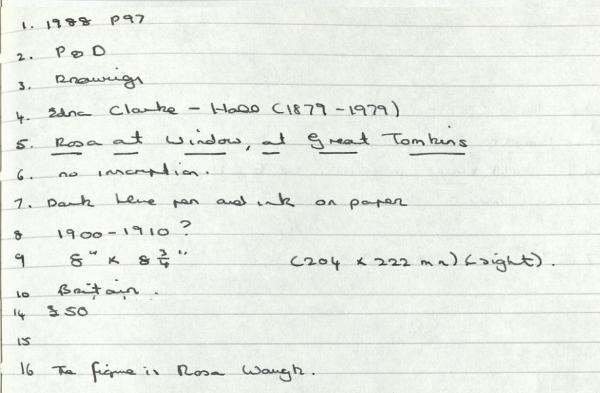 1. 1988 P97
2. P & D
3. Drawings
4. Edna Clarke - Hall (1879 - 1979)
5. Rosa at Window, at Great Tomkins
6. no inscription.
7. Dark blue pen and ink on paper
8 1900 - 1910 ?
9 8" x 8 3/4" (204 x 222 mm) (sight).
10 Britain.
14 £50
15
16 The figure is Rosa Waugh.